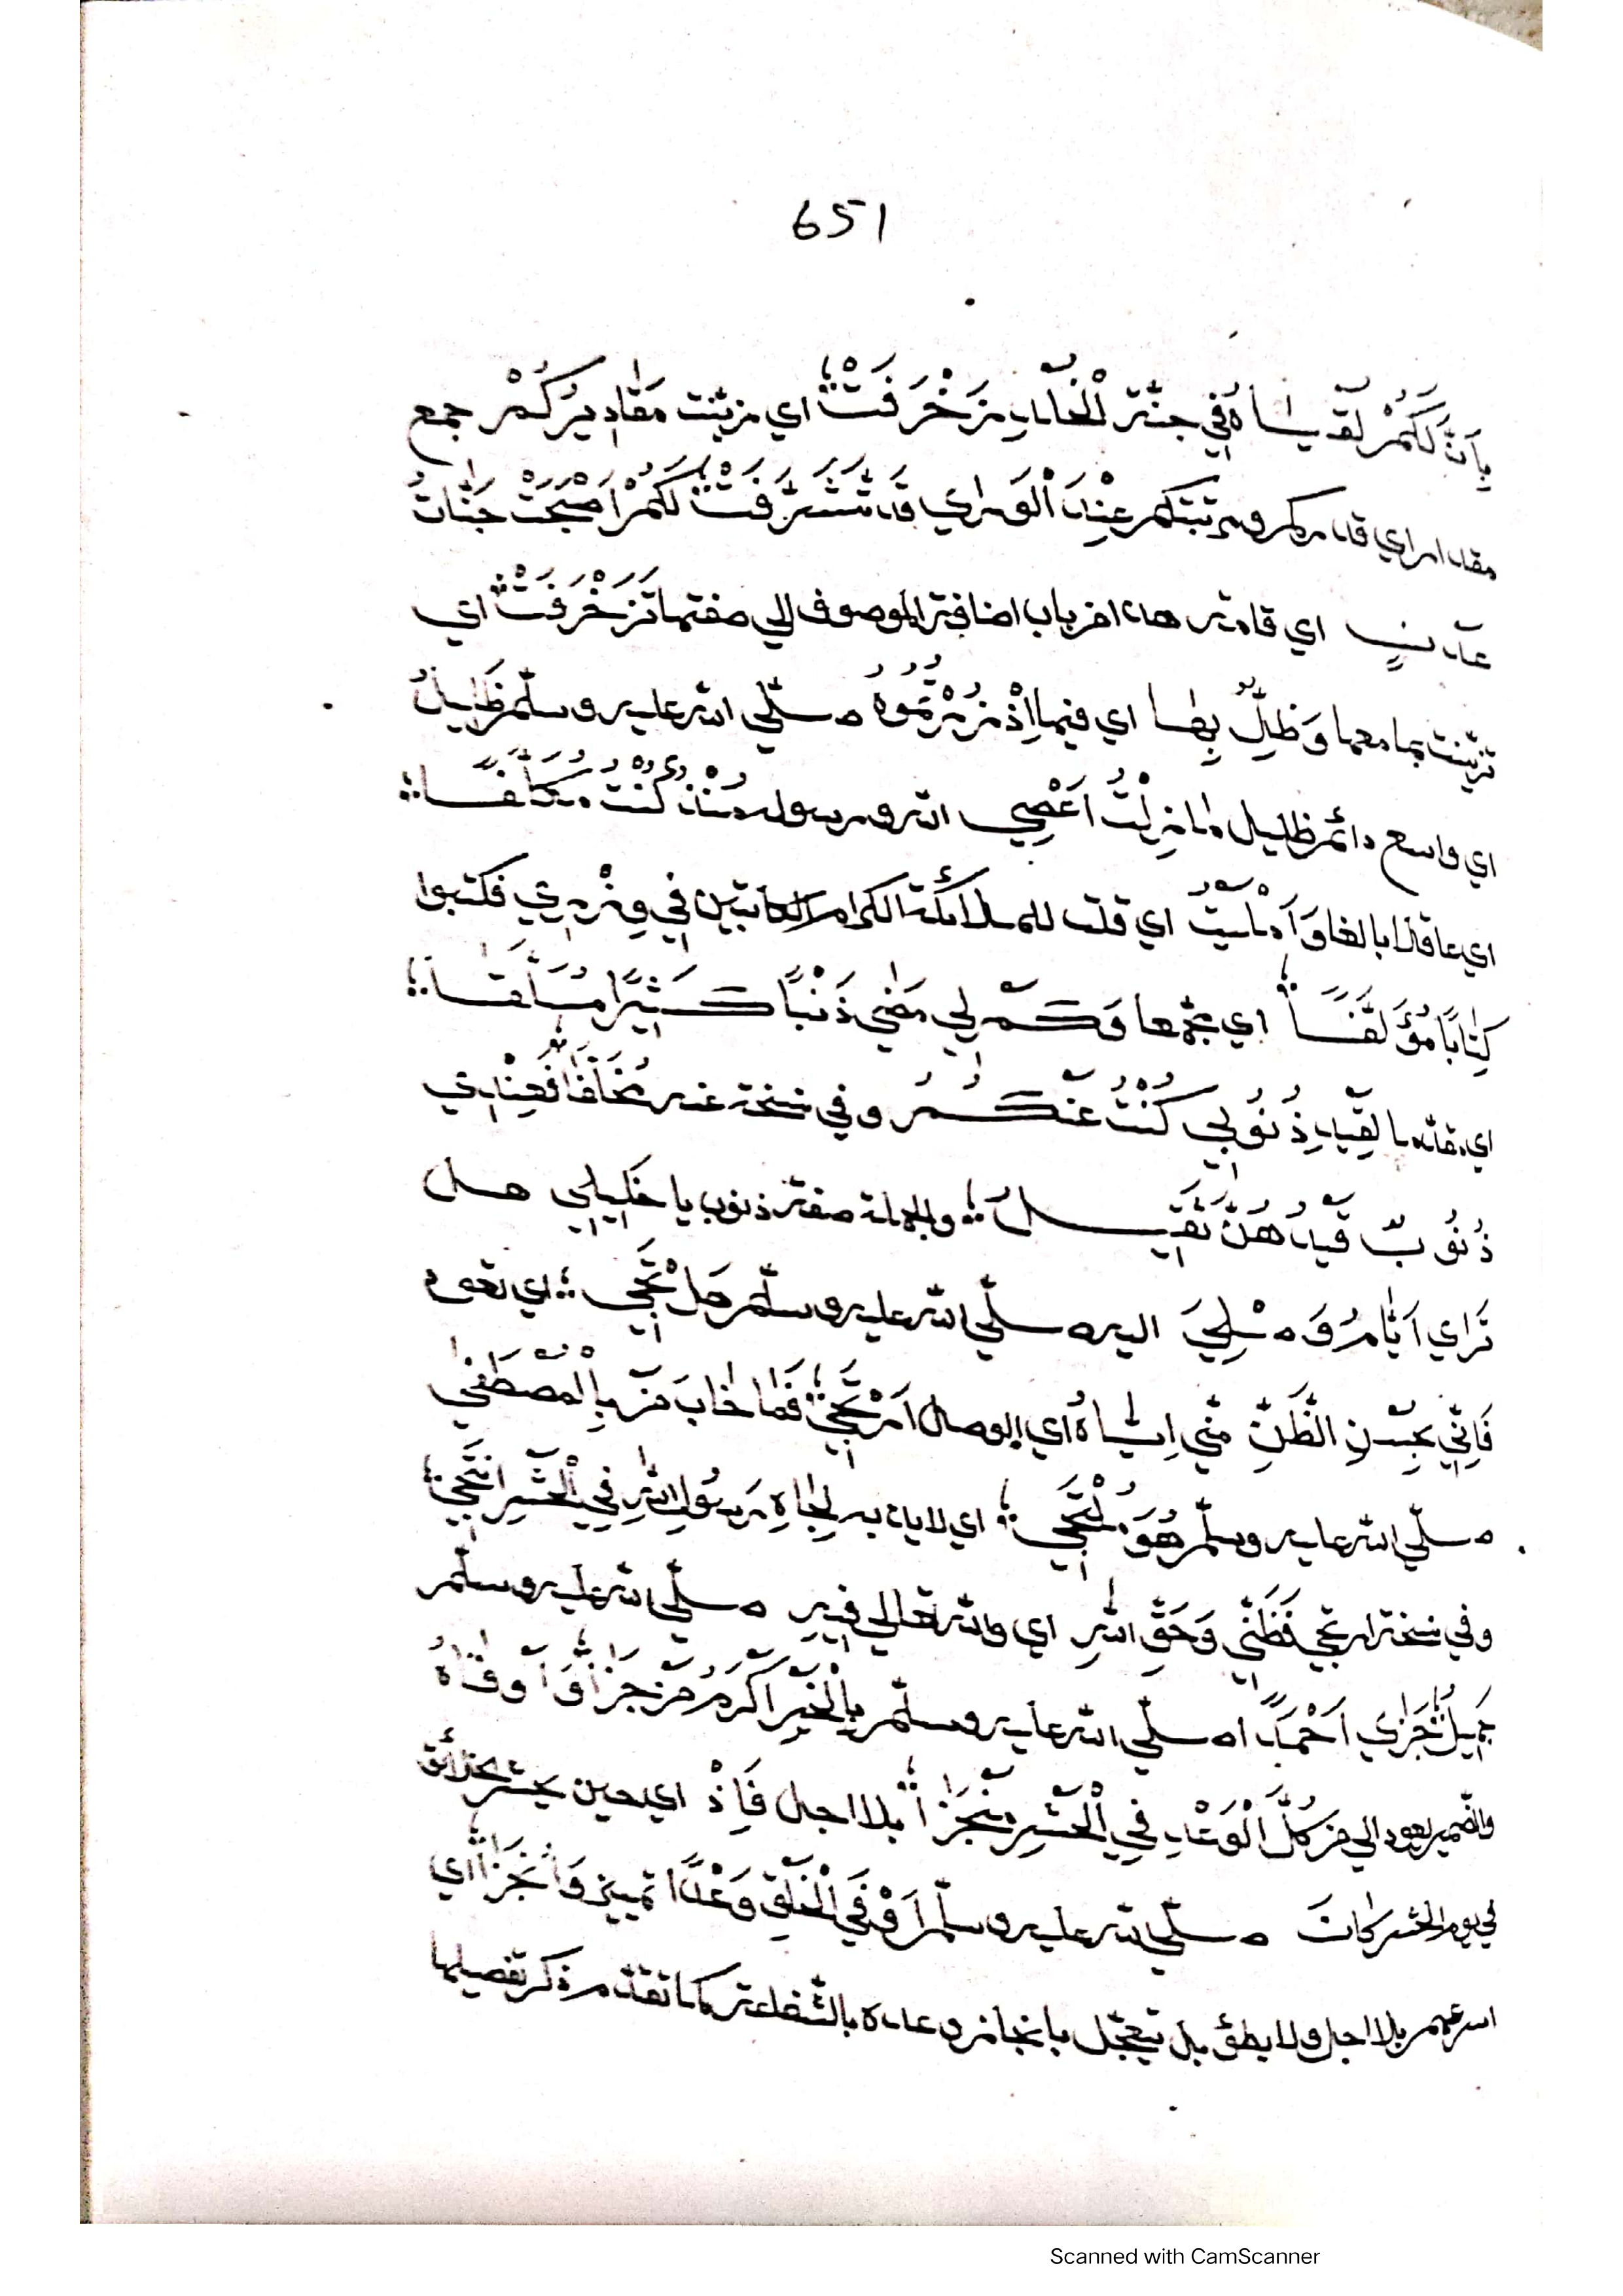 651
بِأَنَّ لَكُمْ لُقْيَاهُ فِي جنّة الْخُلْدِ زَخْرَفَتْ؛ اي زيّنت مَقَادِيرُكُمْ جمع
مقدار اي قدركم ومرتبتكم عِنْدَ الْوَرٰي قَدْ تَشَرَّفَتْ؛ لَكُمْ اَصْبَحَتْ جَنّٰاتُ
عَدْنٍ اي اقامة هذا من باب اضافة الموصوف الي صفتها تَزَخْرَفَتْ؛ اي
تزيّنت بما معها وَظِلٌّ بِهٰا اي فيها اِذْ زُرْتُمُوهُ صلّي الله عليه وسلّم ظَلِيلُ
اي واسع دائم ظليل مٰا زِلْتُ اَعْصِي الله ورسوله مُنْذُ كُنْتُ مُكَلَّفًا؛
اي عاقلا بالغا وَاَمْلَيْتُ اي قلت للملائكة الكرام الكاتبين في وِزْرِي فكتبوا
كِتٰابًا مُؤَلَّفًا؛ اي مجمعا وَكَمْ لِي مَضٰي ذَنْبًا كَثِيرًا مُسَلَّفًا؛
اي مقدّما لِقَيْدِ ذُنُوبِي كُنْتُ عَنْكُمْ وفي نسخة عنه مُخَلَّفًا؛ فَعِنْدِي
ذُنُوبٌ قَيْدُهُنَّ ثَقِيلُ؛ والجملة صفة ذنوب يا خَلِيلِي هل
تَرٰي اَيّٰامُ وَصْلِيَ اليه صلّي الله عليه وسلّم هَلْ تَجِي؛ اي تعود
فَاِنِّي بِحُسْنِ الظَّنِّ مِنِّي اِيّٰاهُ اي الوصال اَرْتَجِي؛ فَمٰا خٰابَ مَنْ بِالْمُصْطَفٰي
صلّي الله عليه وسلّم هُوَ مُلْتَجِي؛ اي لايذ به لِجٰاهِ رَسُولِ اللهِ فِي الْحَشْرِ اَنْتَجِي؛
وفي نسخة ارتجي فَظَنِّي وَحَقِّ اللهِ اي والله تعالي فِيهِ صلّي الله عليه وسلّم
جَمِيلُ؛ جَزٰي اَحْمَدًا صلّي الله عليه وسلّم بِالْخَيْرِ اَكْرَمُ مَنْ جَزٰا؛ وَاَوْفٰاهُ
والضمير يعود الي من كُلَّ الْوَعْدِ فِي الْحَشْرِ مُنْجَزًا؛ بلا اجل فَاِذْ اي حين يحشر الخلائق
في يوم الحشر كٰانَ صلّي الله عليه وسلّم اَوْفَي الْخَلْقِ وَعْدًا تمييز وَاَنْجَزٰا؛ اي
اسرعهم بلا اجل ولا يطؤ بل يتعجّل بانجاز وعده بالشفاعة كما تقدّم ذكر تفصيلها
Scanned with CamScanner